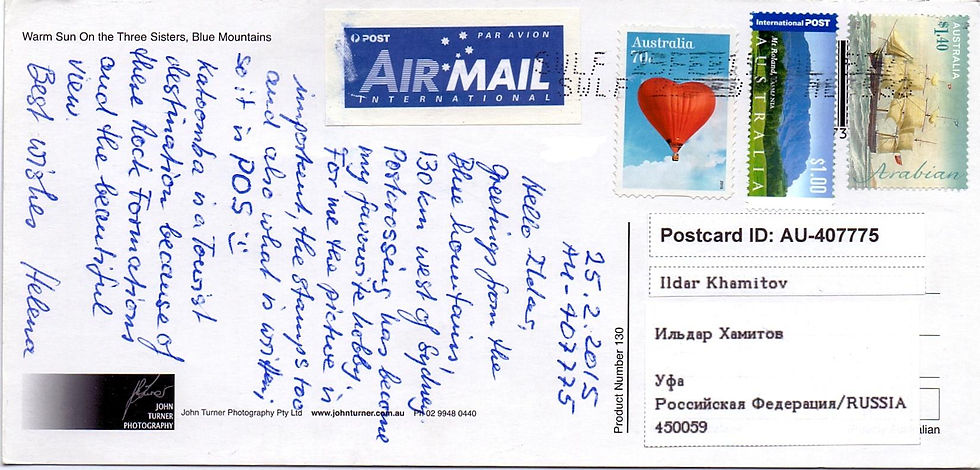 Warm Sun On the Three Sisters, Blue Mountains
POST
PAR AVION
AIR MAIL
INTERNATIONAL
Australia
70c
International POST
Mt Roland, TASMANIA
AUSTRALIA
$1.00
AUSTRALIA
$1.40
Arabian
25.2.2015
AU-407775
Hello Ildar,
Greetings from the
Blue Mountains,
130km west of Sydney.
Postcrossing has become
my favourite hobby.
For me the picture is
important, the stamps too
and also what is written,
so it in POS
Katoomba is a Tourist
destination because of
there Rock Formations
and the beautiful
view.
Best wishes Helena
Postcard ID: AU-407775
Ildar Khamitov
Ильдар Хамитов
Уфа
Российская Федерация/RUSSIA
450059
Product Number 130
JOHN
TURNER
PHOTOGRAPHY
John Turner Photography Pty Ltd www.johnturner.com.au Ph 02 9948 0440